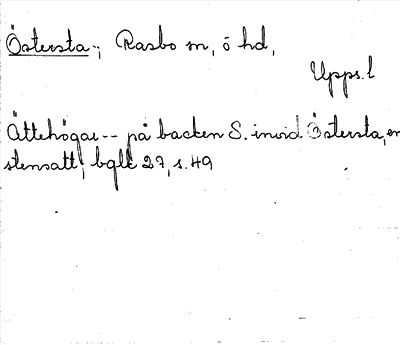 Östersta, Rasbo sn, ö hd,
Upps. l
Ättehögar -- på backen S. invid Östersta, en
stensatt, bgll 27, s. 49